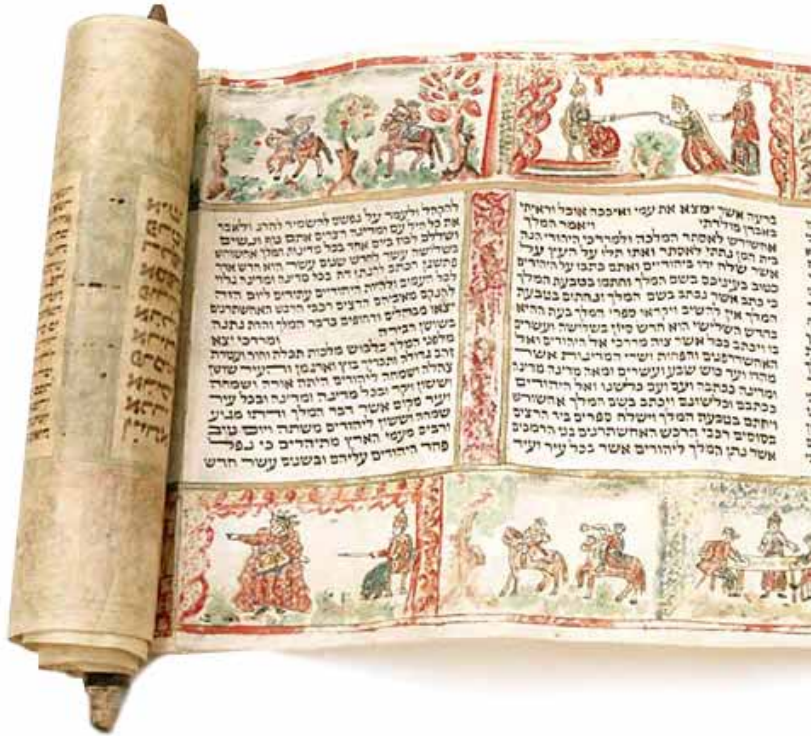 ברעה אשר ימצא את עמי ואיככה אוכל וראיתי
באבדן מולדתי ויאמר המלך
אחשורש לאסתר המלכה ולמרדכי היהודי הנה
בית המן נתתי לאסתר ואתו תלו על העץ על
אשר שלח ידו ביהודיים ואתם כתבו על היהודים
כטוב בעיניכם בשם המלך וחתמו בטבעת המלך
כי כתב אשר נכתב בשם המלך ונחתום בטבעת
המלך אין להשיב ויקראו ספרי המלך בעת ההיא
בחדש השלישי הוא חדש סיון בשלושה ועשרים
בו ויכתב ככל אשר צוה מרדכי אל היהודים ואל
האחשדרפנים והפחות ושרי המדינות אשר
מהדו ועד כוש שבע ועשרים ומאה מדינה מדינה
ומדינה ככתבה ועם ועם כלשנו ואל היהודים
ככתבם וכלשונם ויכתב בשם המלך אחשורש
ויחתם בטבעת המלך וישלח ספרים ביד הרצים
בסוסים רכבי הרכש האחשתרנים בני הרמכים
אשר נתן המלך ליהודים אשר בכל עיר ועיר
להקהל ולעמד על נפשם להשמיד להרג ולאבד
את כל חיל עם ומדינה הצרים אתם טף ונשים
ושללם לבוז ביום אחד בכל מדינות המלך אחשורוש
בשלושה עשר לחדש שנים עשר הוא חדש אדר
פתשגן הכתב להנתן דת בכל מדינה ומדינה גלוי
לכל העמים ולהיות היהודיים עתידים ליום הזה
להנקם מאיביהם הרצים רכבי הרכש האחשתרנים
יצאו מבהלים ודחופים בדבר המלך והדת נתנה
בשושן הבירה ומרדכי יצא
מלפני המלך בלבוש מלכות תכלת וחור ועטרת
זהב גדולה ותכריך בוץ וארגמן והעיר שושן
צהלה ושמחה ליהודים היתה אורה ושמחה
וששון ויקר ובכל מדינה ומדינה ובכל עיר
ועיר מקום אשר דבר המלך ודתו מגיע
שמחה וששון ליהודים משתה ויום טוב
ורבים מעמי הארץ מתיהדים כי נפל
פחד היהודים עליהם ובשנים עשר חדש